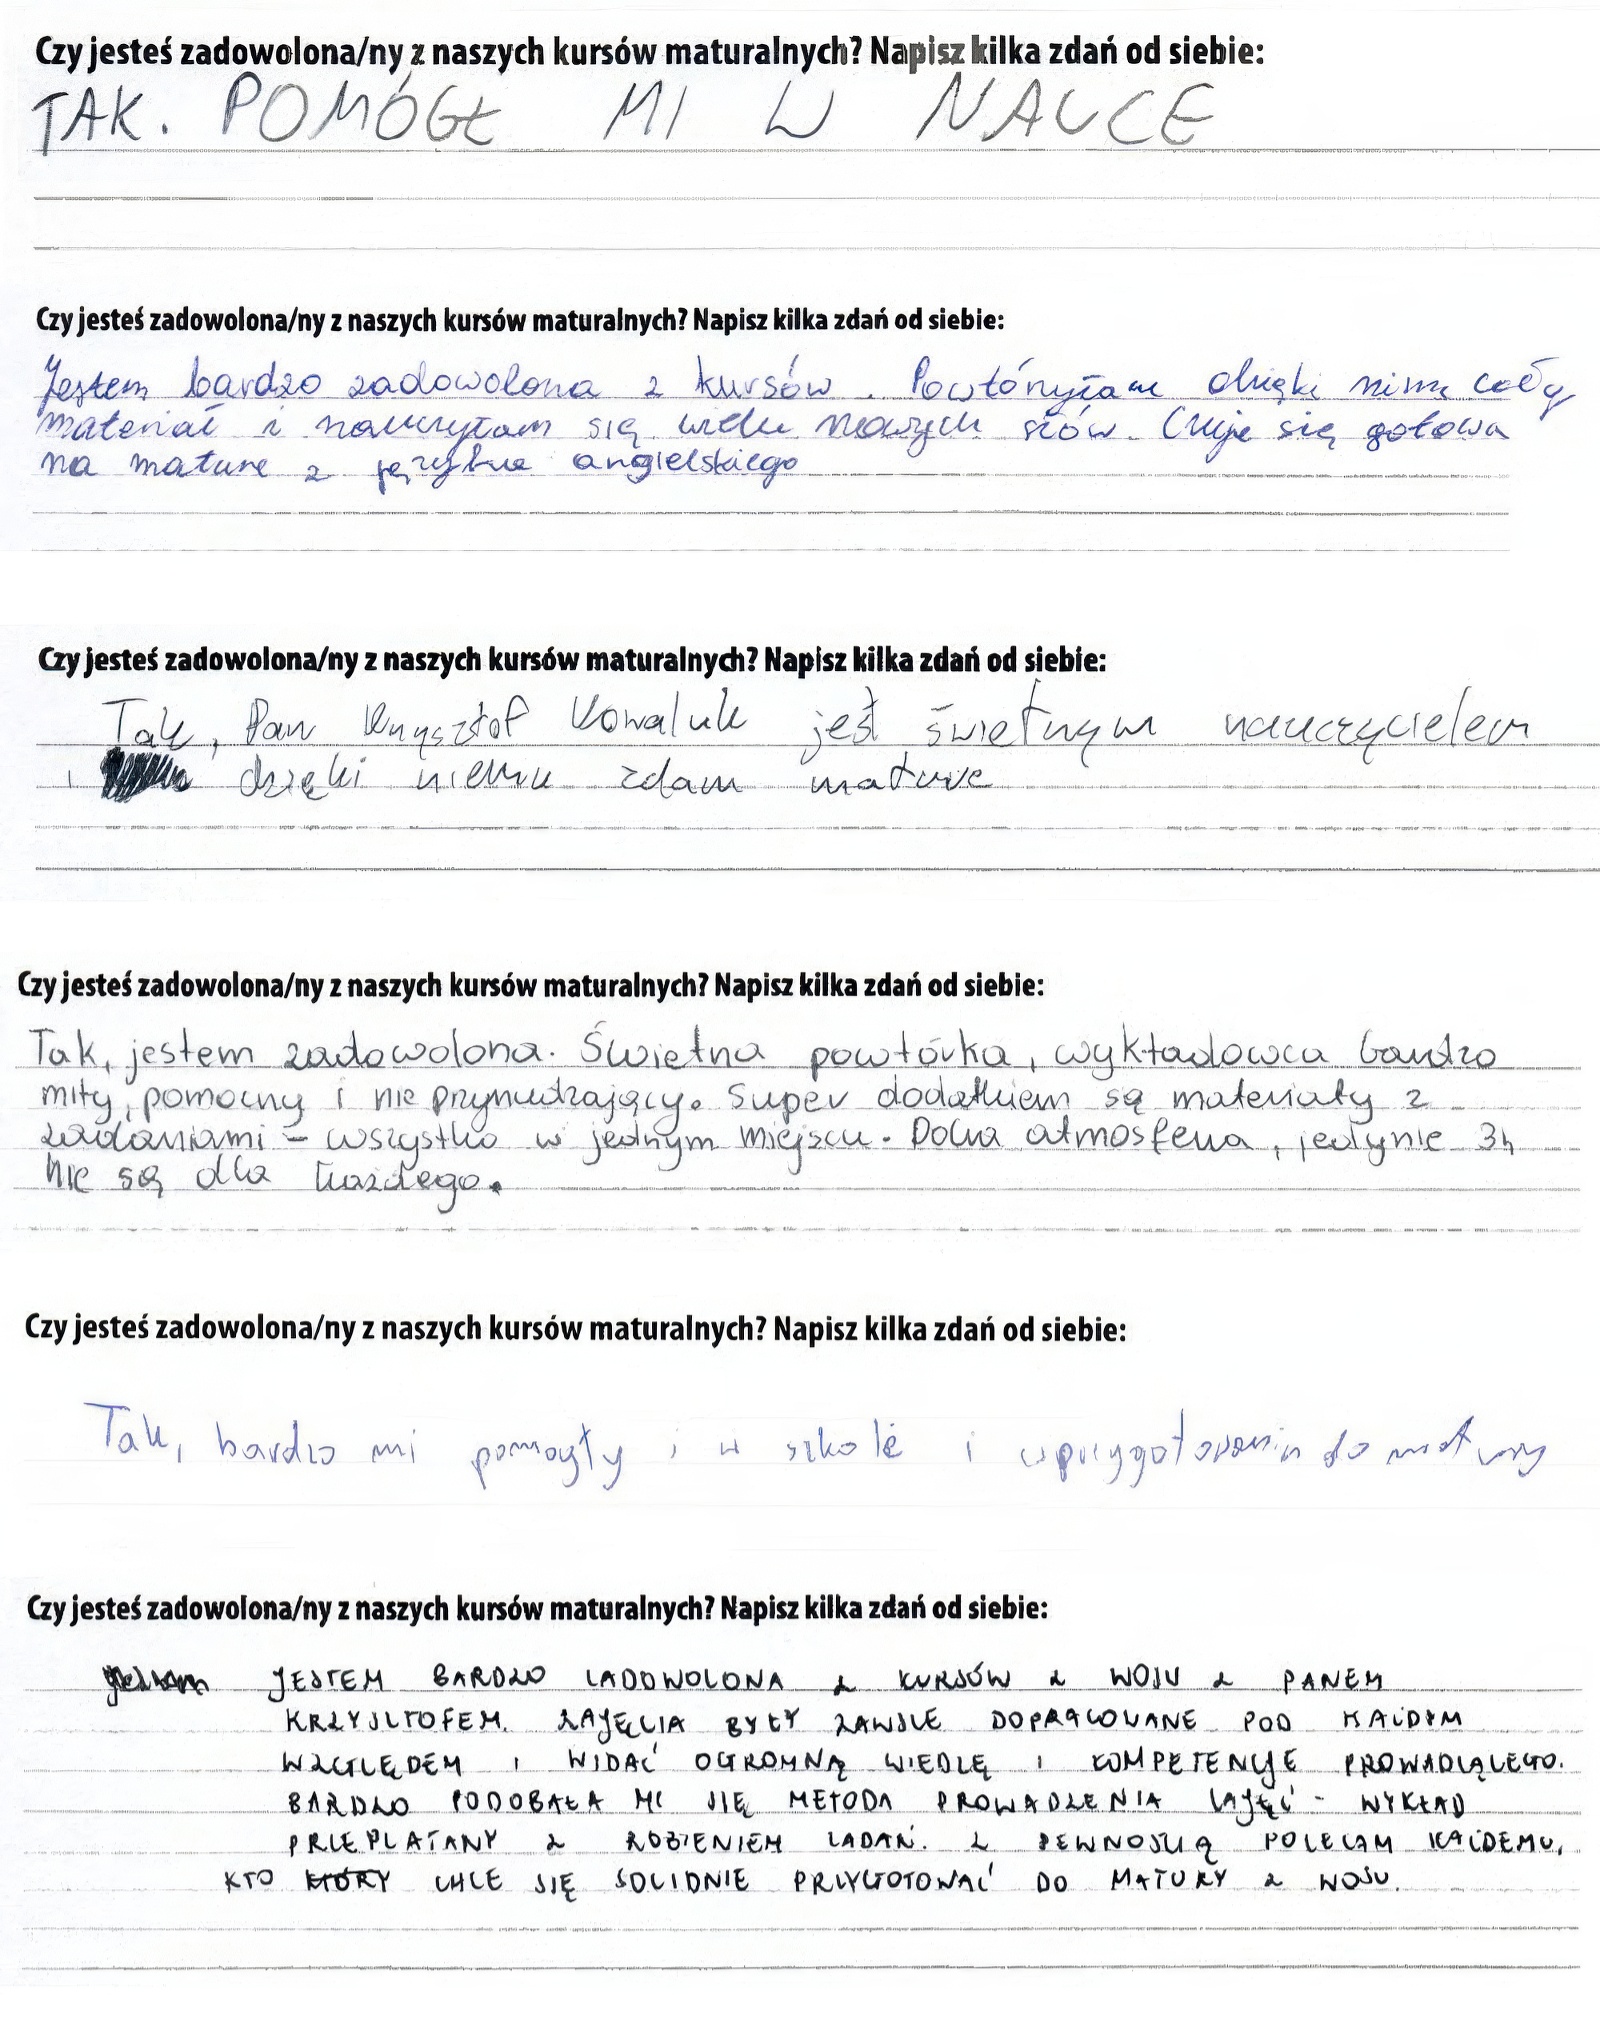 Czy jesteś zadowolona/ny z naszych kursów maturalnych? Napisz kilka zdań od siebie:
TAK. POMÓGŁ MI W NAUCE
Czy jesteś zadowolona/ny z naszych kursów maturalnych? Napisz kilka zdań od siebie:
Jestem bardzo zadowolona z kursów. Powtórzyłam dzięki nimą cały
materiał i nauczyłam się wielu nowych słów. Czuje się gotowa
na mature z języka angielskiego
Czy jesteś zadowolona/ny z naszych kursów maturalnych? Napisz kilka zdań od siebie:
Tak, Pan Krzysztof Kowaluk jest świetnym nauczycielem
i dzięki niemu zdam mature
Czy jesteś zadowolona/ny z naszych kursów maturalnych? Napisz kilka zdań od siebie:
Tak, jestem zadowolona. Świetna powtórka, wykładowca bardzo
miły, pomocny i nie przynudzający. Super dodatkiem są materiały z
zadaniami - wszystko w jednym miejscu. Dobra atmosfera, jedynie 3h
nie są dla każdego.
Czy jesteś zadowolona/ny z naszych kursów maturalnych? Napisz kilka zdań od siebie:
Tak, bardzo mi pomogły i w szkole i w przygotowaniu do matury
Czy jesteś zadowolona/ny z naszych kursów maturalnych? Napisz kilka zdań od siebie:
JESTEM BARDZO ZADOWOLONA Z KURSÓW Z WOSU Z PANEM
KRZYSZTOFEM. ZAJĘCIA BYŁY ZAWSZE DOPRACOWANE POD KAŻDYM
WZGLĘDEM I WIDAĆ OGROMNĄ WIEDZĘ I KOMPETENCJE PROWADZĄCEGO.
BARDZO PODOBAŁA MI SIĘ METODA PROWADZENIA ZAJĘĆ - WYKŁAD
PRZEPLATANY Z ROBIENIEM ZADAŃ. Z PEWNOŚCIĄ POLECAM KAŻDEMU,
KTO KTÓRY CHCE SIĘ SOLIDNIE PRZYGOTOWAĆ DO MATURY Z WOSU.